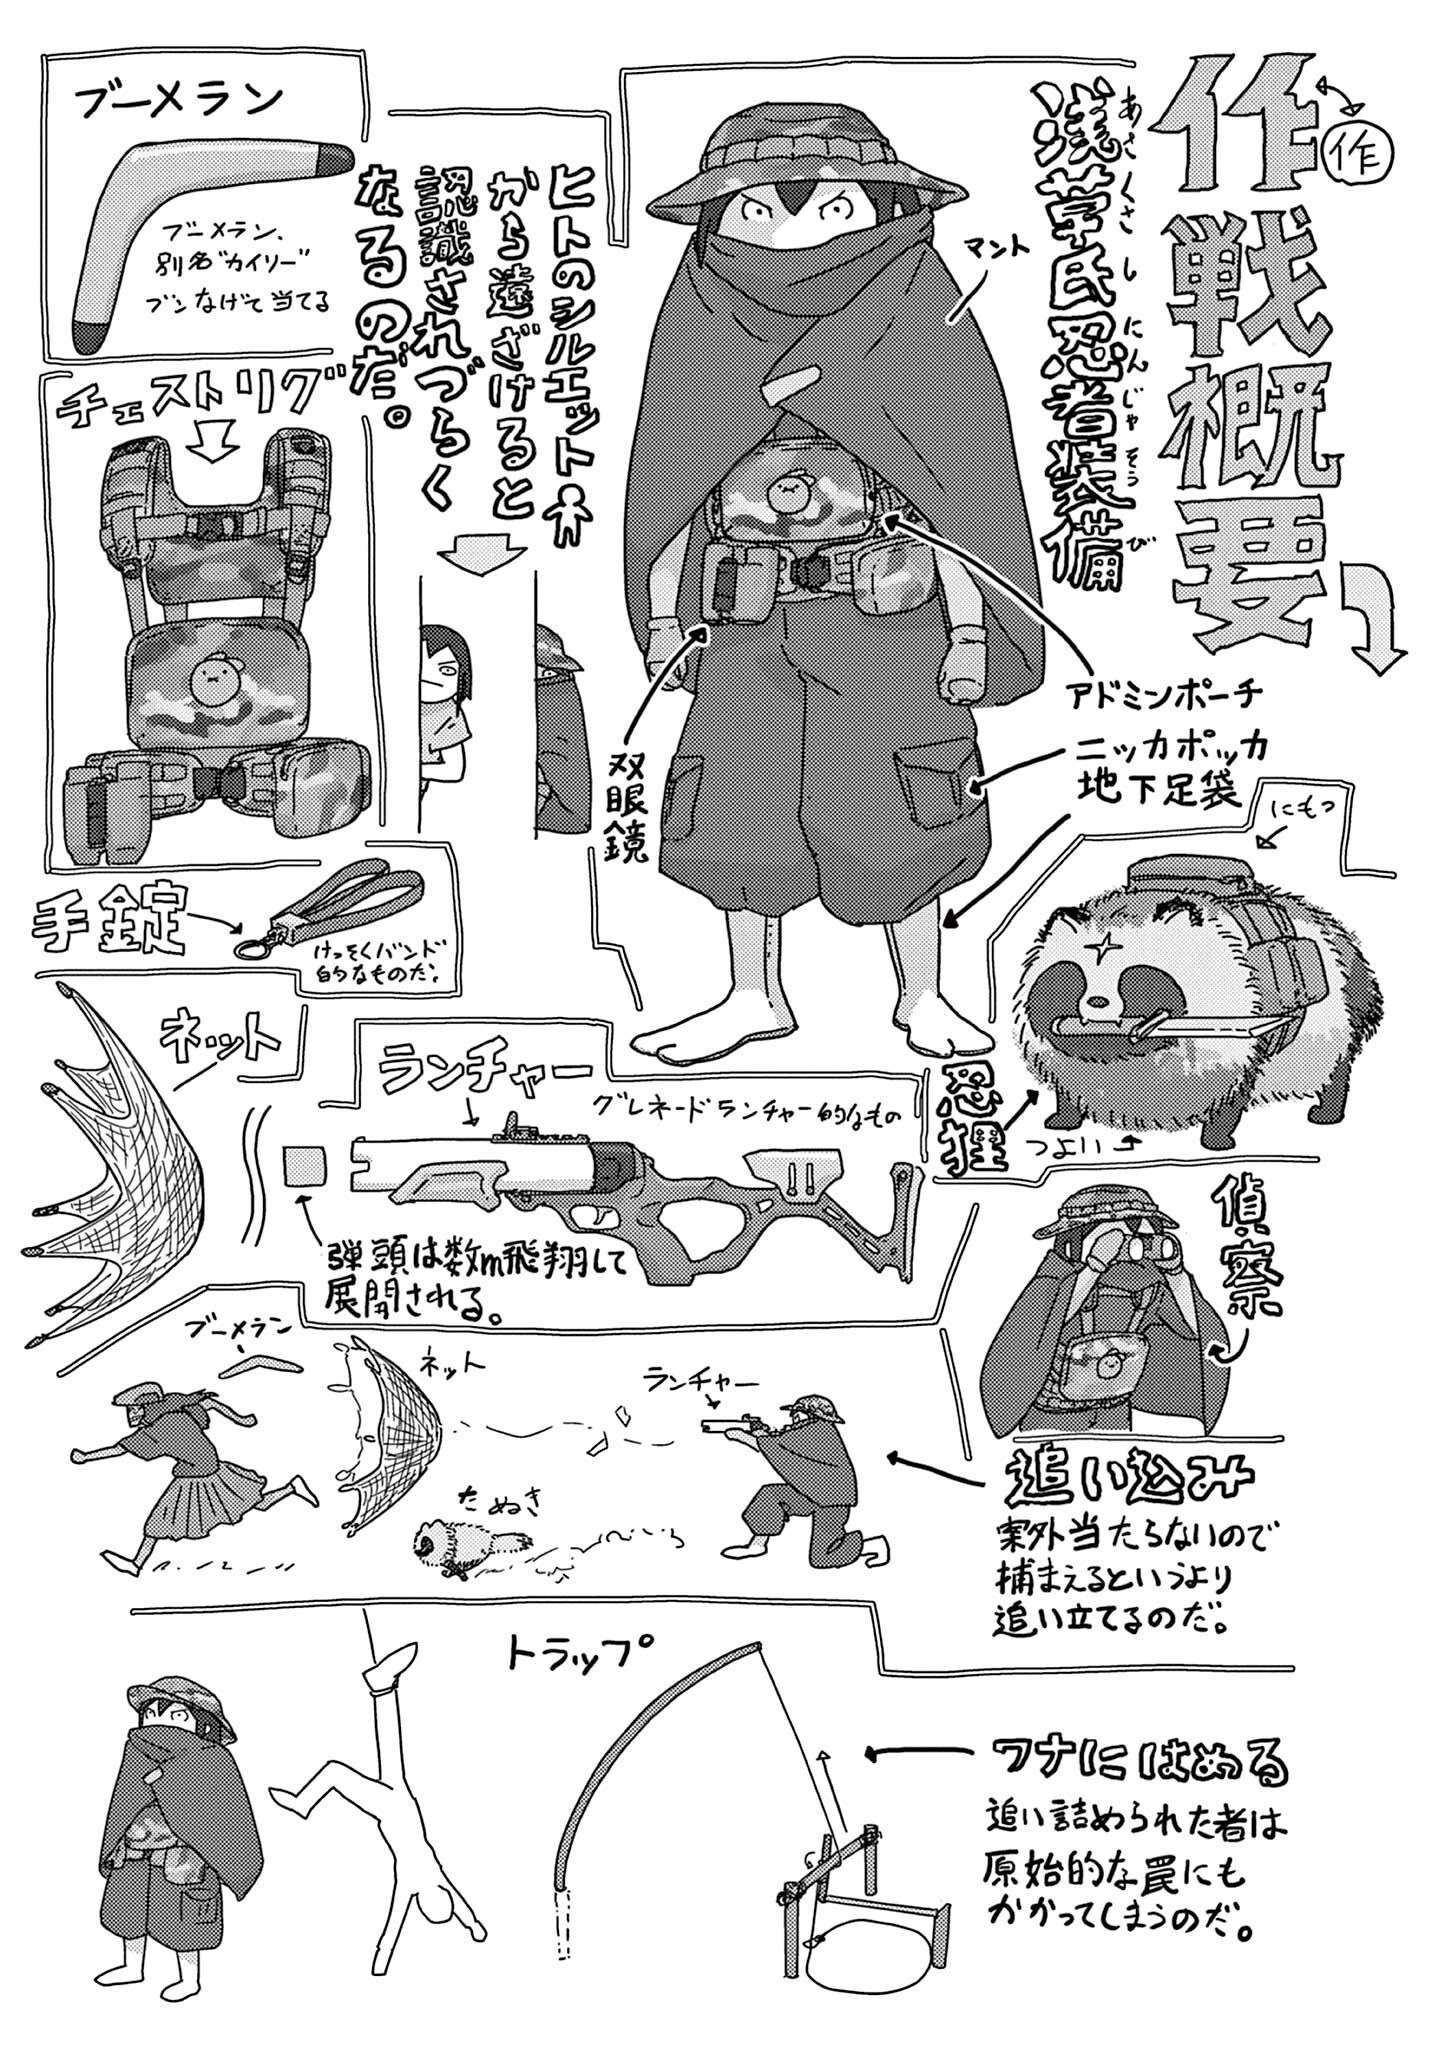 作戦概要
作
浅草氏忍者装備
あさくさしにんじゃそうび
マント
ヒトのシルエット
から遠ざけると
認識されづらく
なるのだ。
アドミンポーチ
双眼鏡
ニッカポッカ
地下足袋
ブーメラン
ブーメラン、
別名"カイリー"
ブンなげて当てる
チェストリグ
手錠
けっそくバンド
的なものだ。
にもつ
忍狸
つよい
ネット
ランチャー
グレネードランチャー的なもの
弾頭は数m飛翔して
展開される。
偵察
ブーメラン
ネット
ランチャー
たぬき
追い込み
案外当たらないので
捕まえるというより
追い立てるのだ。
トラップ
ワナにはめる
追い詰められた者は
原始的な罠にも
かかってしまうのだ。